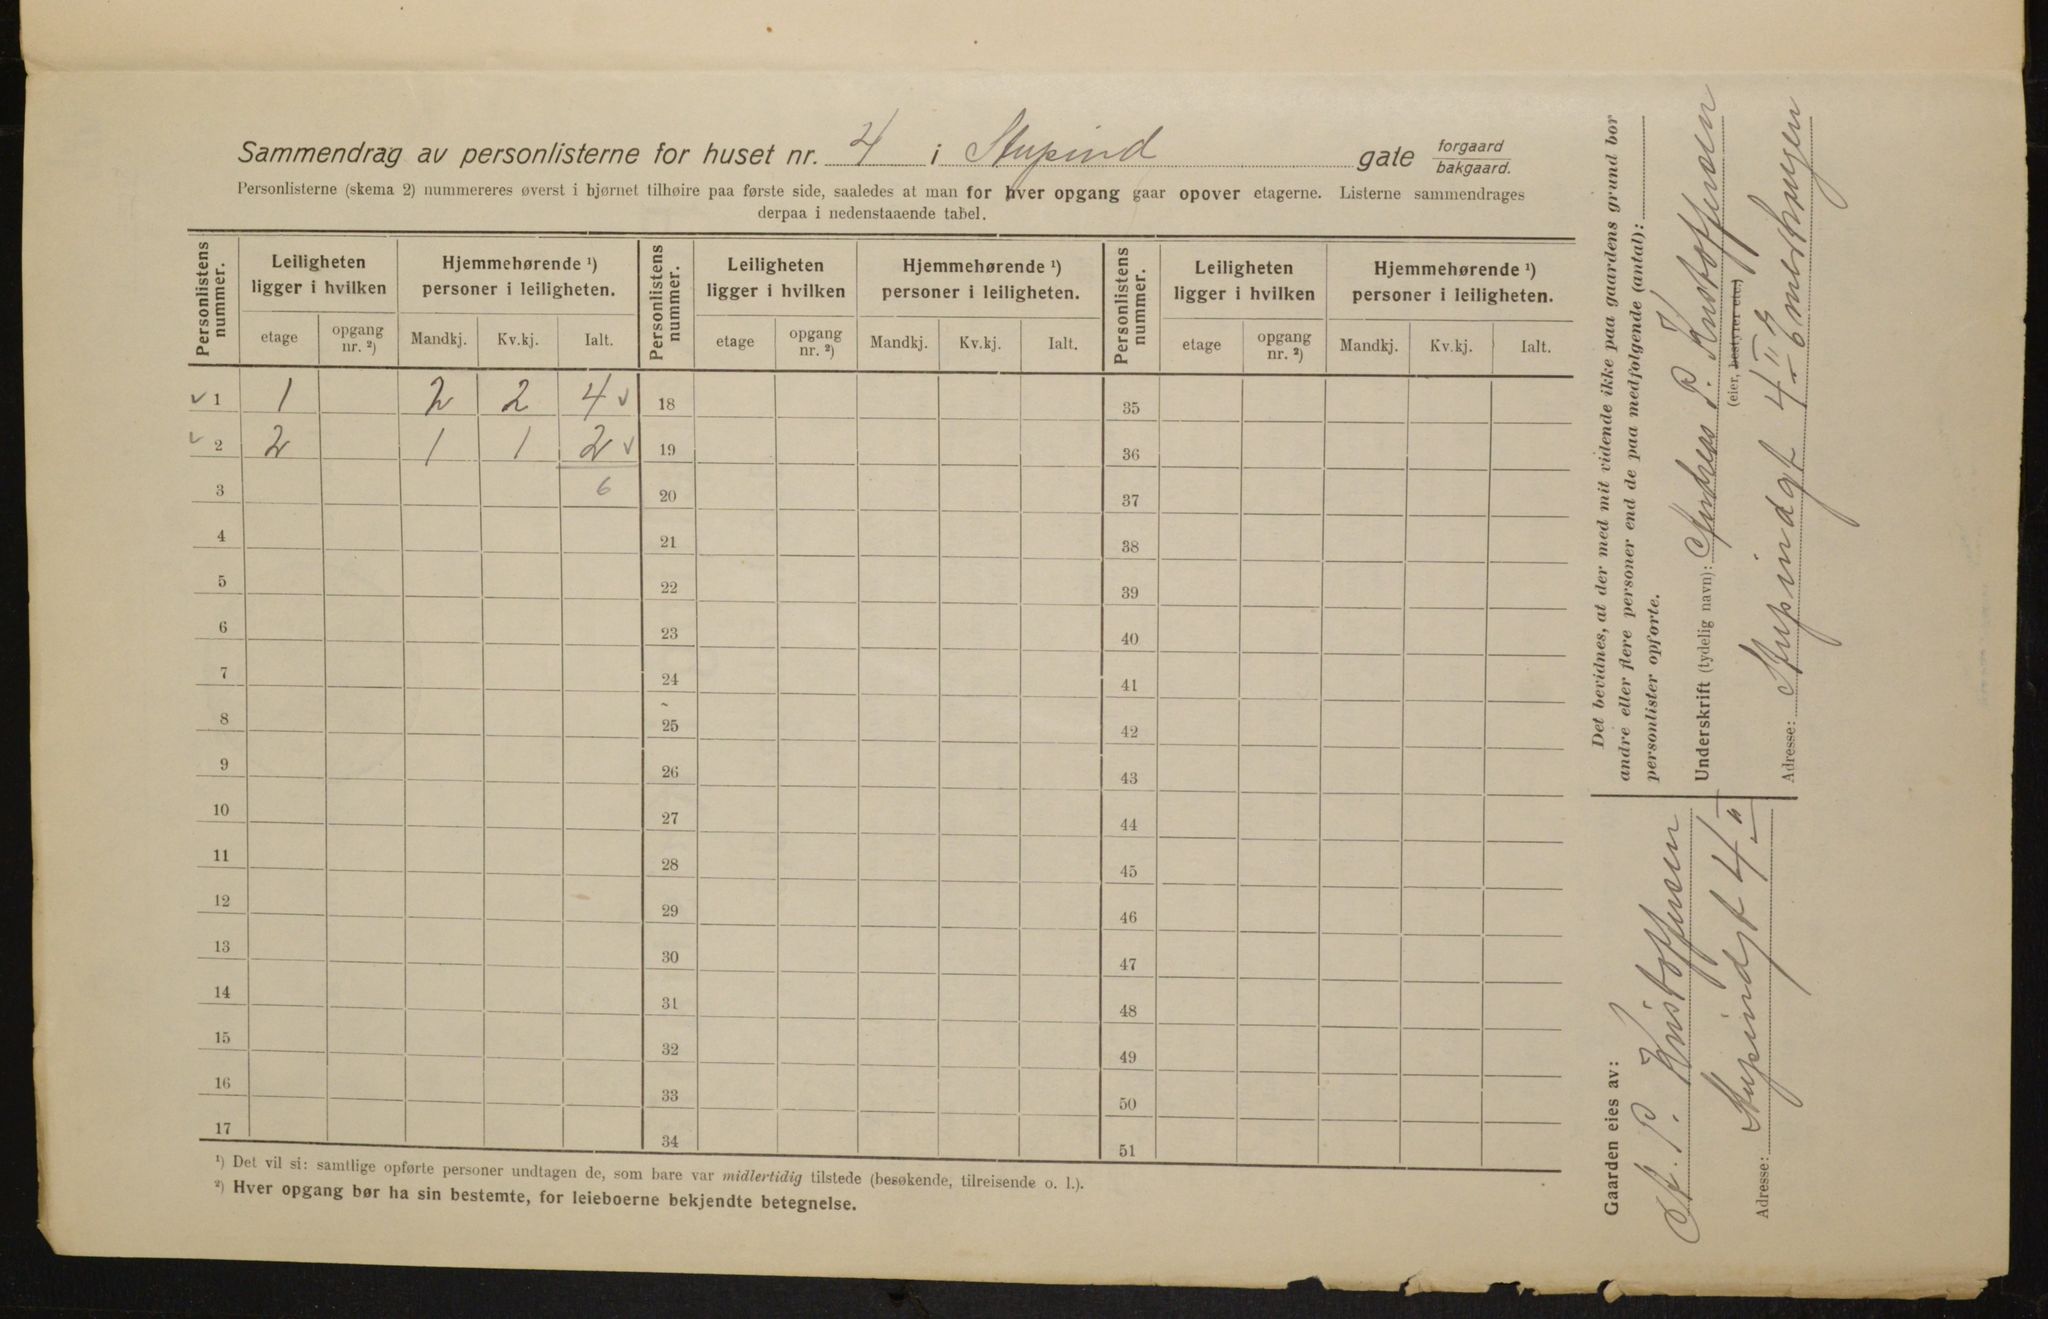 Sammendrag av personlisterne for huset nr. 4 i Stupind gate forgaard
bakgaard.
Personlisterne (skema 2) nummereres øverst i hjørnet tilhøire paa første side, saaledes at man for hver opgang gaar opover etagerne. Listerne sammendrages
derpaa i nedenstaaende tabel.
Personlistens nummer. Leiligheten ligger i hvilken Hjemmehørende ¹) personer i leiligheten. Personlistens nummer. Leiligheten ligger i hvilken Hjemmehørende ¹) personer i leiligheten. Personlistens nummer. Leiligheten ligger i hvilken Hjemmehørende ¹) personer i leiligheten.
etage opgang nr. ²) Mandkj. Kv.kj. Ialt. etage opgang nr. ²) Mandkj. Kv.kj. Ialt. etage opgang nr. ²) Mandkj. Kv.kj. Ialt.
✓ 1 1 2 2 4 ✓ 18 35
✓ 2 2 1 1 2 ✓ 19 36
3 6 20 37
4 21 38
5 22 39
6 23 40
7 24 41
8 25 42
9 26 43
10 27 44
11 28 45
12 29 46
13 30 47
14 31 48
15 32 49
16 33 50
17 34 51
¹) Det vil si: samtlige opførte personer undtagen de, som bare var midlertidig tilstede (besøkende, tilreisende o. l.).
²) Hver opgang bør ha sin bestemte, for leieboerne bekjendte betegnelse.
Det bevidnes, at der med mit vidende ikke paa gaardens grund bor
andre eller flere personer end de paa medfølgende (antal):
personlister opførte.
Underskrift (tydelig navn): Andreas P. Kristoffersen
(eier, bestyrer etc.)
Adresse: Stupindgt 4
Gaarden eies av:
A. P. Kristoffersen
Adresse: Stupindgt 4